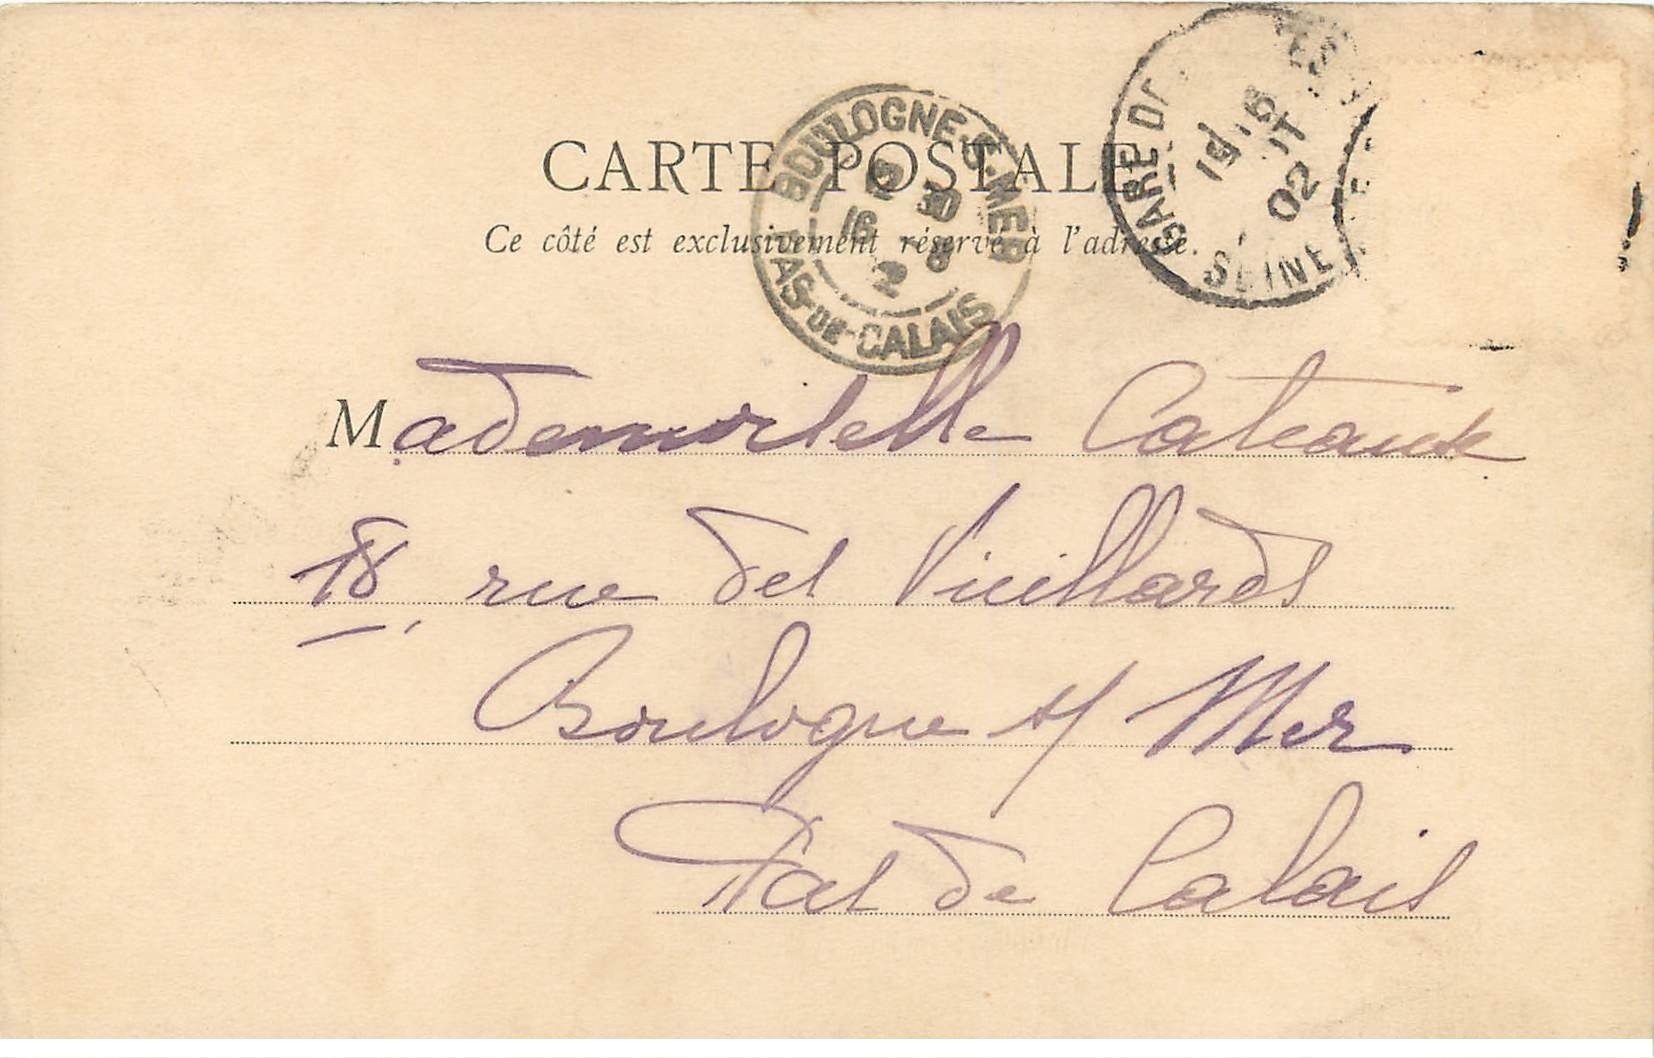 CARTE POSTALE
Ce côté est exclusivement réservé à l'adresse.
BOULOGNE-S-MER
12 30
16 8
2
PAS-DE-CALAIS
GARE DE
15
02
SEINE
Mademoiselle Cateaux
18, rue des Vieillards
Boulogne s/ Mer
Pas de Calais